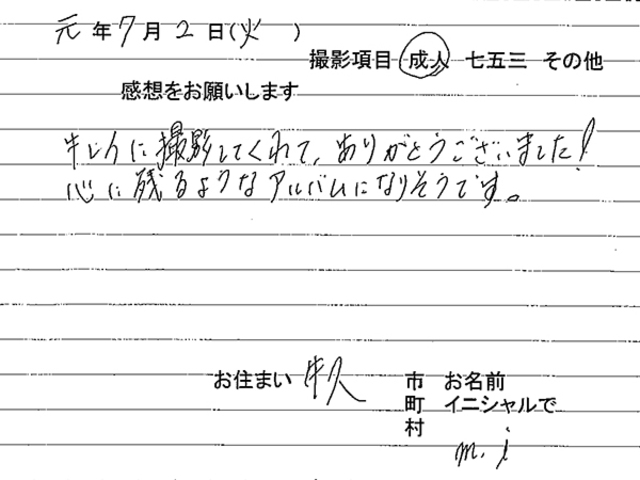 元年7月2日(火 )
撮影項目 成人 七五三 その他
感想をお願いします
キレイに撮影してくれて、ありがとうございました!
心に残るようなアルバムになりそうです。
お住まい 牛久 市 お名前
町 イニシャルで
村
m.i